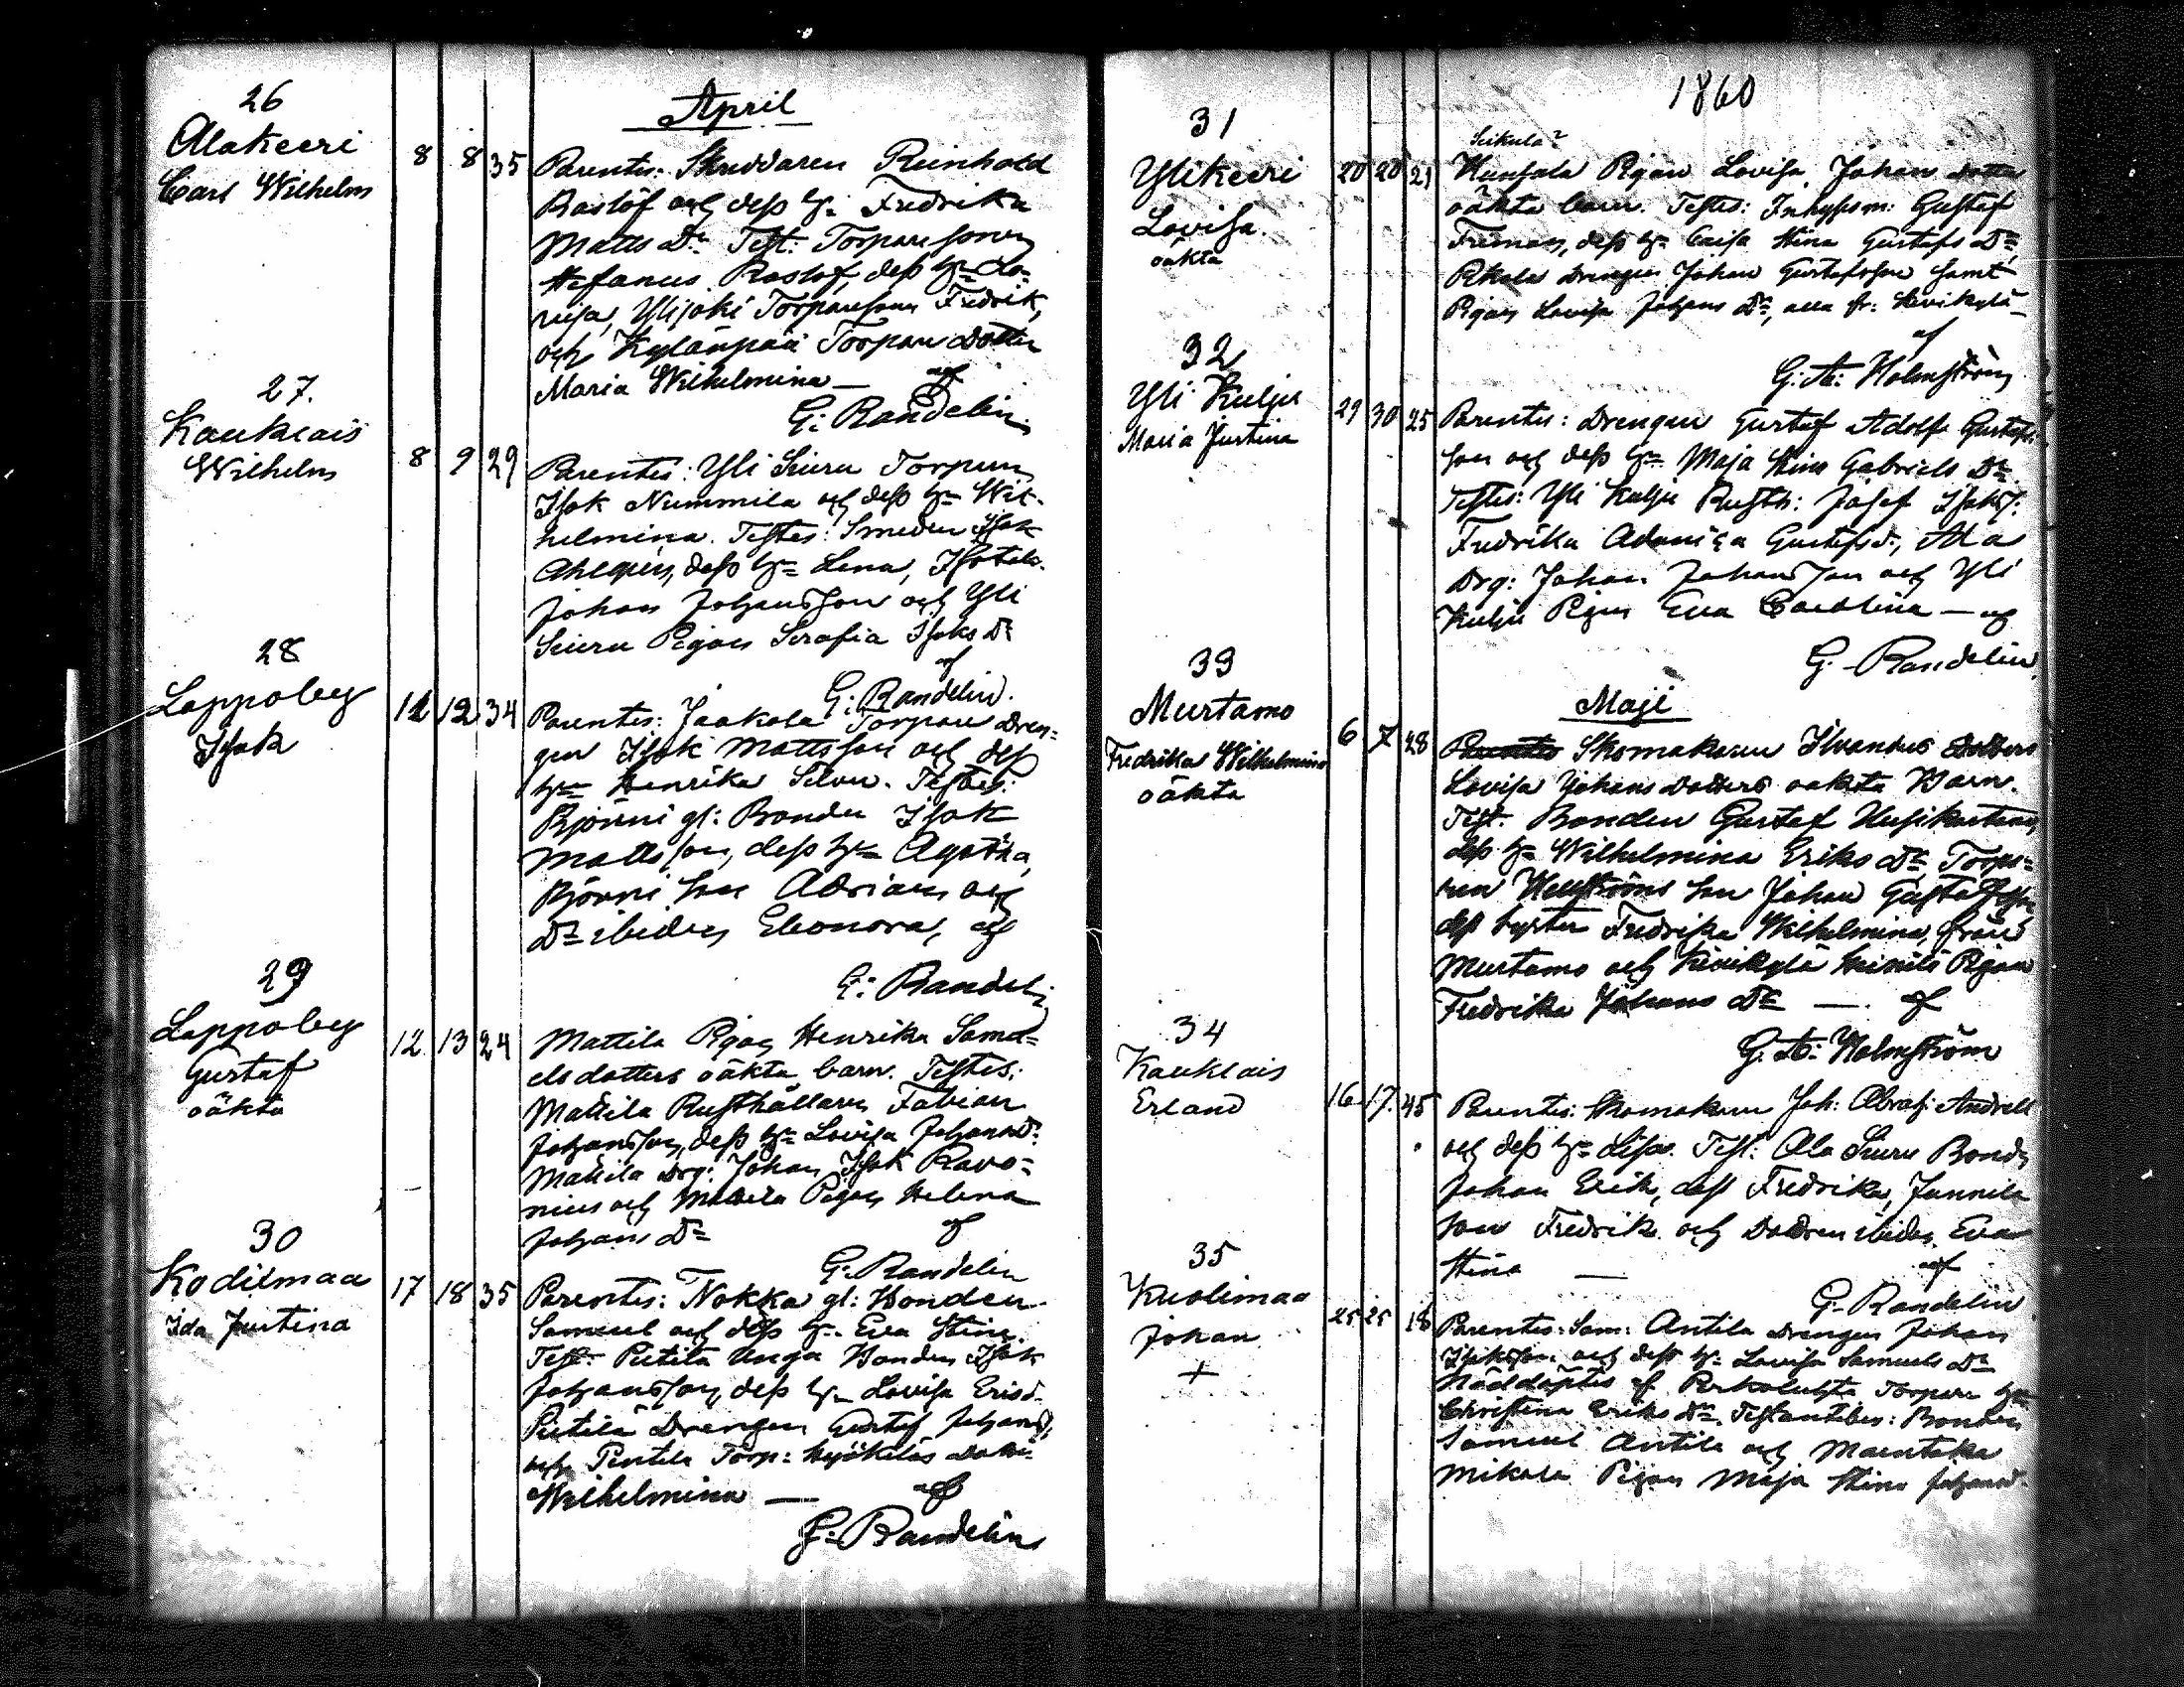 April
26
Alakeeri
Carl Wilhelm
8 8 35
Parentes: Skräddaren Reinhold
Roslöf och dess h: Fredrika
Matts Dr Test: Torpare sonen
Stefanus Roslöf, dess hu Lo-
visa, Ylijoki Torparesonen Fredrik,
och Kylänpää Torpare Dotter
Maria Wilhelmina — af
G: Randelin
27.
Kauklais
Wilhelm
8 9 29
Parentes: Yli Seuru Torparen
Isak Nummila och dess hu Wil-
helmina. Testes: Smeden Isak
Ahlqvist, dess hu Lena,
Johan Johansson och Yli
Seuru Pigan Serafia Isaks Dr
af
G: Randelin.
28
Lappoby
Isak
12 12 34
Parentes: Jaakola Torpare Dren-
gen Isak Mattsson och dess
hu Henrika Silven. Testes:
Björni gl: Bonden Isak
Mattsson, dess hu Agatha,
Björni Son Adrian och
Dr ibidem Eleonora, af
G: Randelin
29
Lappoby
Gustaf
oäkta
12 13 24
Mattila Pigan Henrika Samu-
elsdotters oäkta barn. Testes:
Mattila Rusthållaren Fabian
Johansson, dess hu Lovisa Johansd:
Mattila Drg: Johan Isak Ravo-
nius och Mattila Pigan Helena
Johans Dr af
G. Randelin
30
Kodilmaa
Ida Justina
17 18 35
Parentes: Nokka gl: Bonden
Samuel och dess h: Eva Stina.
Test: Pietilä Unga Bonden Isak
Johansson, dess hu Lovisa Ericsd.
Pietilä Drengen Gustaf Johanss,
och Pentilä Torp: Dotter
Wilhelmina — af
G: Randelin
1860
31
Ylikeeri
Lovisa.
oäkta
20 20 21
Seikula?
Hunsala Pigan Lovisa Johans dotters
oäkta barn. Testes: Inhysesm: Gustaf
Freman, dess hu Caisa Stina Gustafs Dr
Drengen Johan Gustafsson samt
Pigan Lovisa Johans Dr, alla fr:
af
G: A: Holmström
32
Yli Kulju
Maria Justina
29 30 25
Parentes: Drengen Gustaf Adolf Gustafs-
son och dess hu Maja Stina Gabriels Dr
Testes: Yli Kulju Rusth: Josef Isakss:
Fredrika Gustafsd:, Ala
Drg: Johan Johansson och Yli
Kulju Pigan Eva Carolina — af
G. Randelin
Maji
33
Murtamo
Fredrika Wilhelmina
oäkta
6 7 28
Parentes Skomakaren Ilvandus dotters
Lovisa Johans dotters oäkta Barn.
Test: Bonden Gustaf Uusikartano,
dess hu Wilhelmina Eriks Dr, Torpa-
ren Hellströms Son Johan Gustafsson
dess syster Fredrika Wilhelmina, från
Murtamo och Kivikylä Heinilä Pigan
Fredrika Johans Dr — af
G. A: Holmström
34
Kauklais
Erland
16 17 45
Parentes: Skomakaren Joh: Abrah: Andrell
och dess hu Lisa. Test: Ala Seuru Bonden
Johan Erik, dess Fredrika, Junnila
Son Fredrik och Dottren ibidem Eva
Stina — af
G. Randelin
35
Kuolimaa
Johan
+
25 25 18
Parentes: Sam: Antila Drengen Johan
Isaksson och dess hu Lovisa Samuels Dr
Nöddöptes af Torpare hu
Christina Eriks Dr. Testantibus: Bonden
Samuel Antila och
Mikola Pigan Maja Stina Johansd.